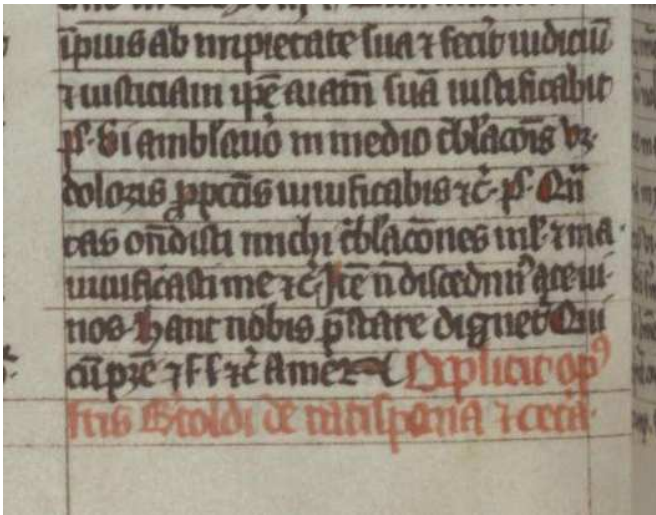 īpius ab impietate sua ⁊ fecĩt iudiciū
⁊ iusticiam ip̄e aīam suā iustificabit
ps. Si ambl'auo in medio tbl'acōis vz.
doloris ppctīs uiuificabis ⁊c̄. ps. Qn̄
tas on̄disti michi tbl'acōnes ml't ma
uiuificasti me ⁊c̄. Itē n̄ discedim᷒ a te ui
nos. Hanc nobis p̄stare dignet᷑ Qui
cū pr̄e ⁊ f s ⁊c̄ Amen Explicit op᷒
fr̄is B̄toldi de ratispona ⁊ cetā.